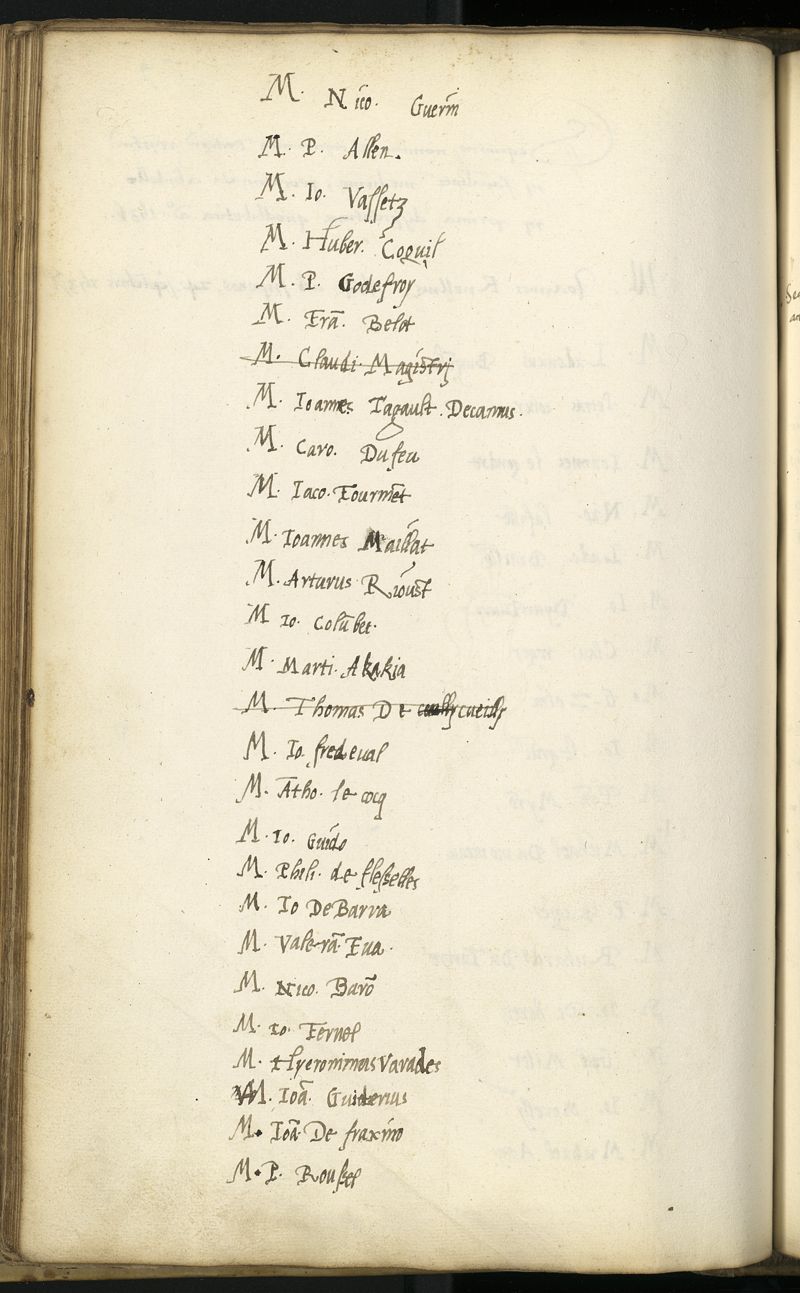 M. Nico. Guerin
M. P. Allen.
M. Io. Vassetz
M. Huber. Coquil
M. P. Godefroy
M. Frā. Belot
M. Claudi. Magistrj
M. Ioannes Tagault. Decanus.
M. Caro. Dufeu
M. Iaco. Fourmēt
M. Ioannes Maillat
M. Arturus Rioust
M Io. Colūbet.
M. Marti. Akakia
M. Thomas De
M. Io. fredeval
M. Ātho. le cocq
M. Io. Guido
M. Phili. de flesselles
M. Io DeBarra
M. Valerā Eua.
M. Nico. Barō
M. Io. Fernel
M. Hyeronimus Varades
M. Ioā. Guiderius
M. Ioā De fraxino
M. P. Roussel